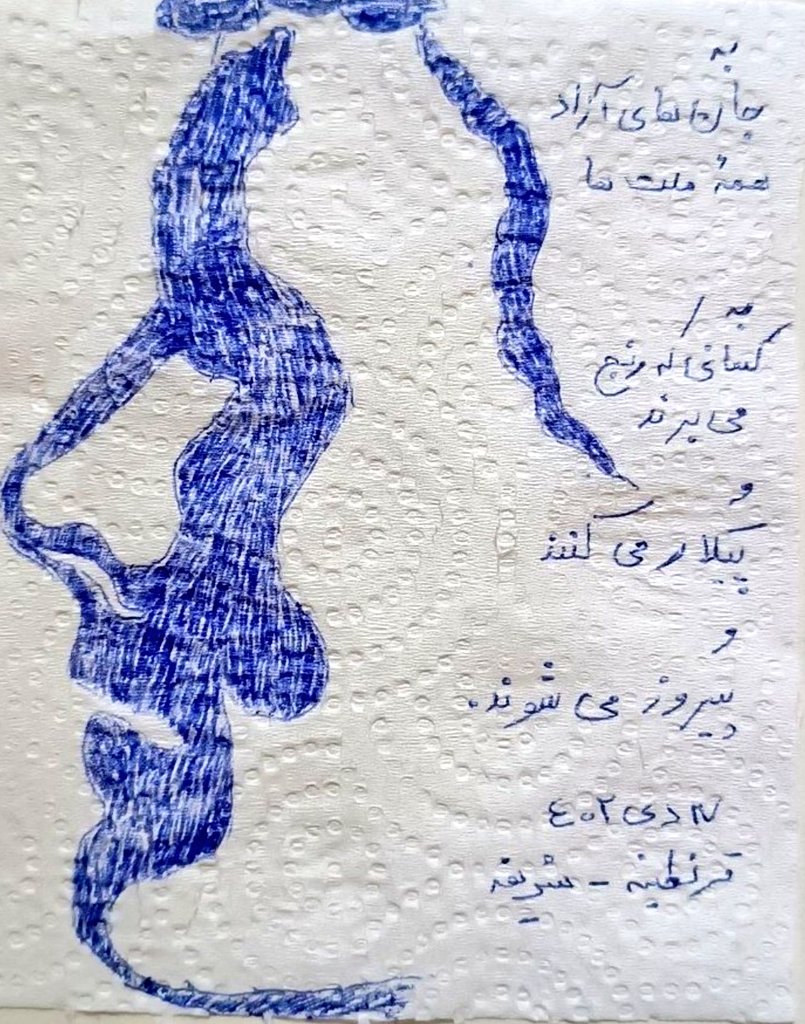 به
جان های آزاد
همهٔ ملت ها
به
کسانی که رنج
می برند
و
پیکار می کنند
و
پیروز می شوند.
دی ۴۰۲
قرنطینه - شریفه